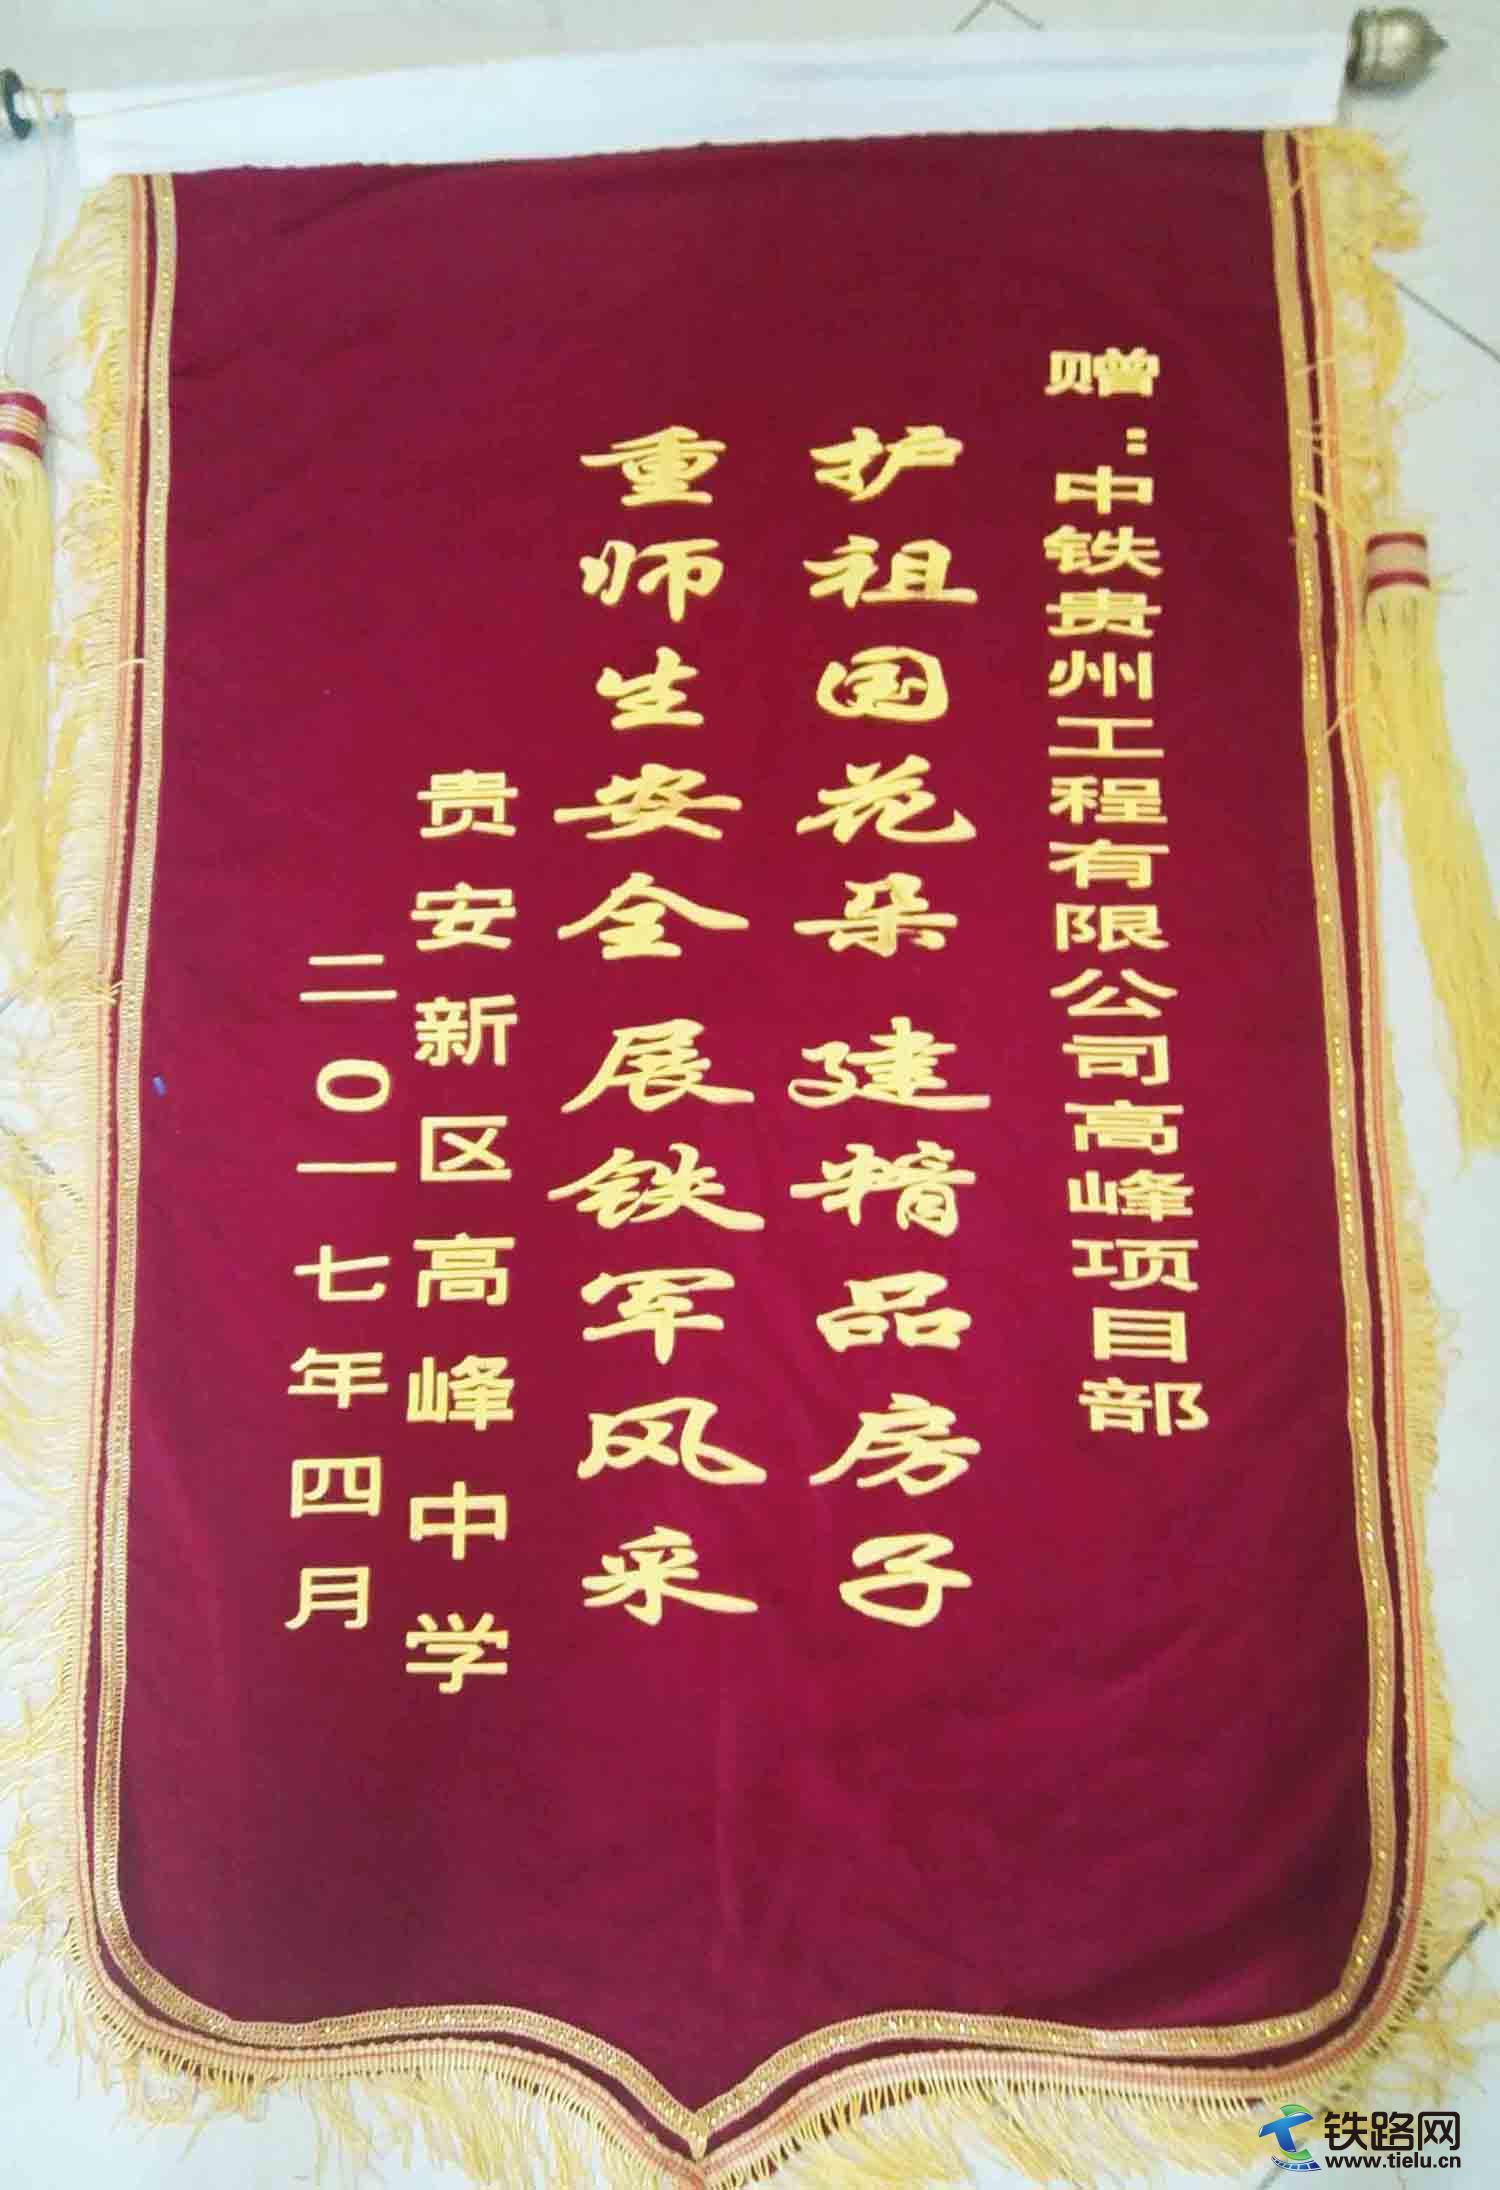 赠：中铁贵州工程有限公司高峰项目部
护祖国花朵 建精品房子
重师生安全 展铁军风采
贵安新区高峰中学
二0一七年四月
铁路网
www.tielu.cn